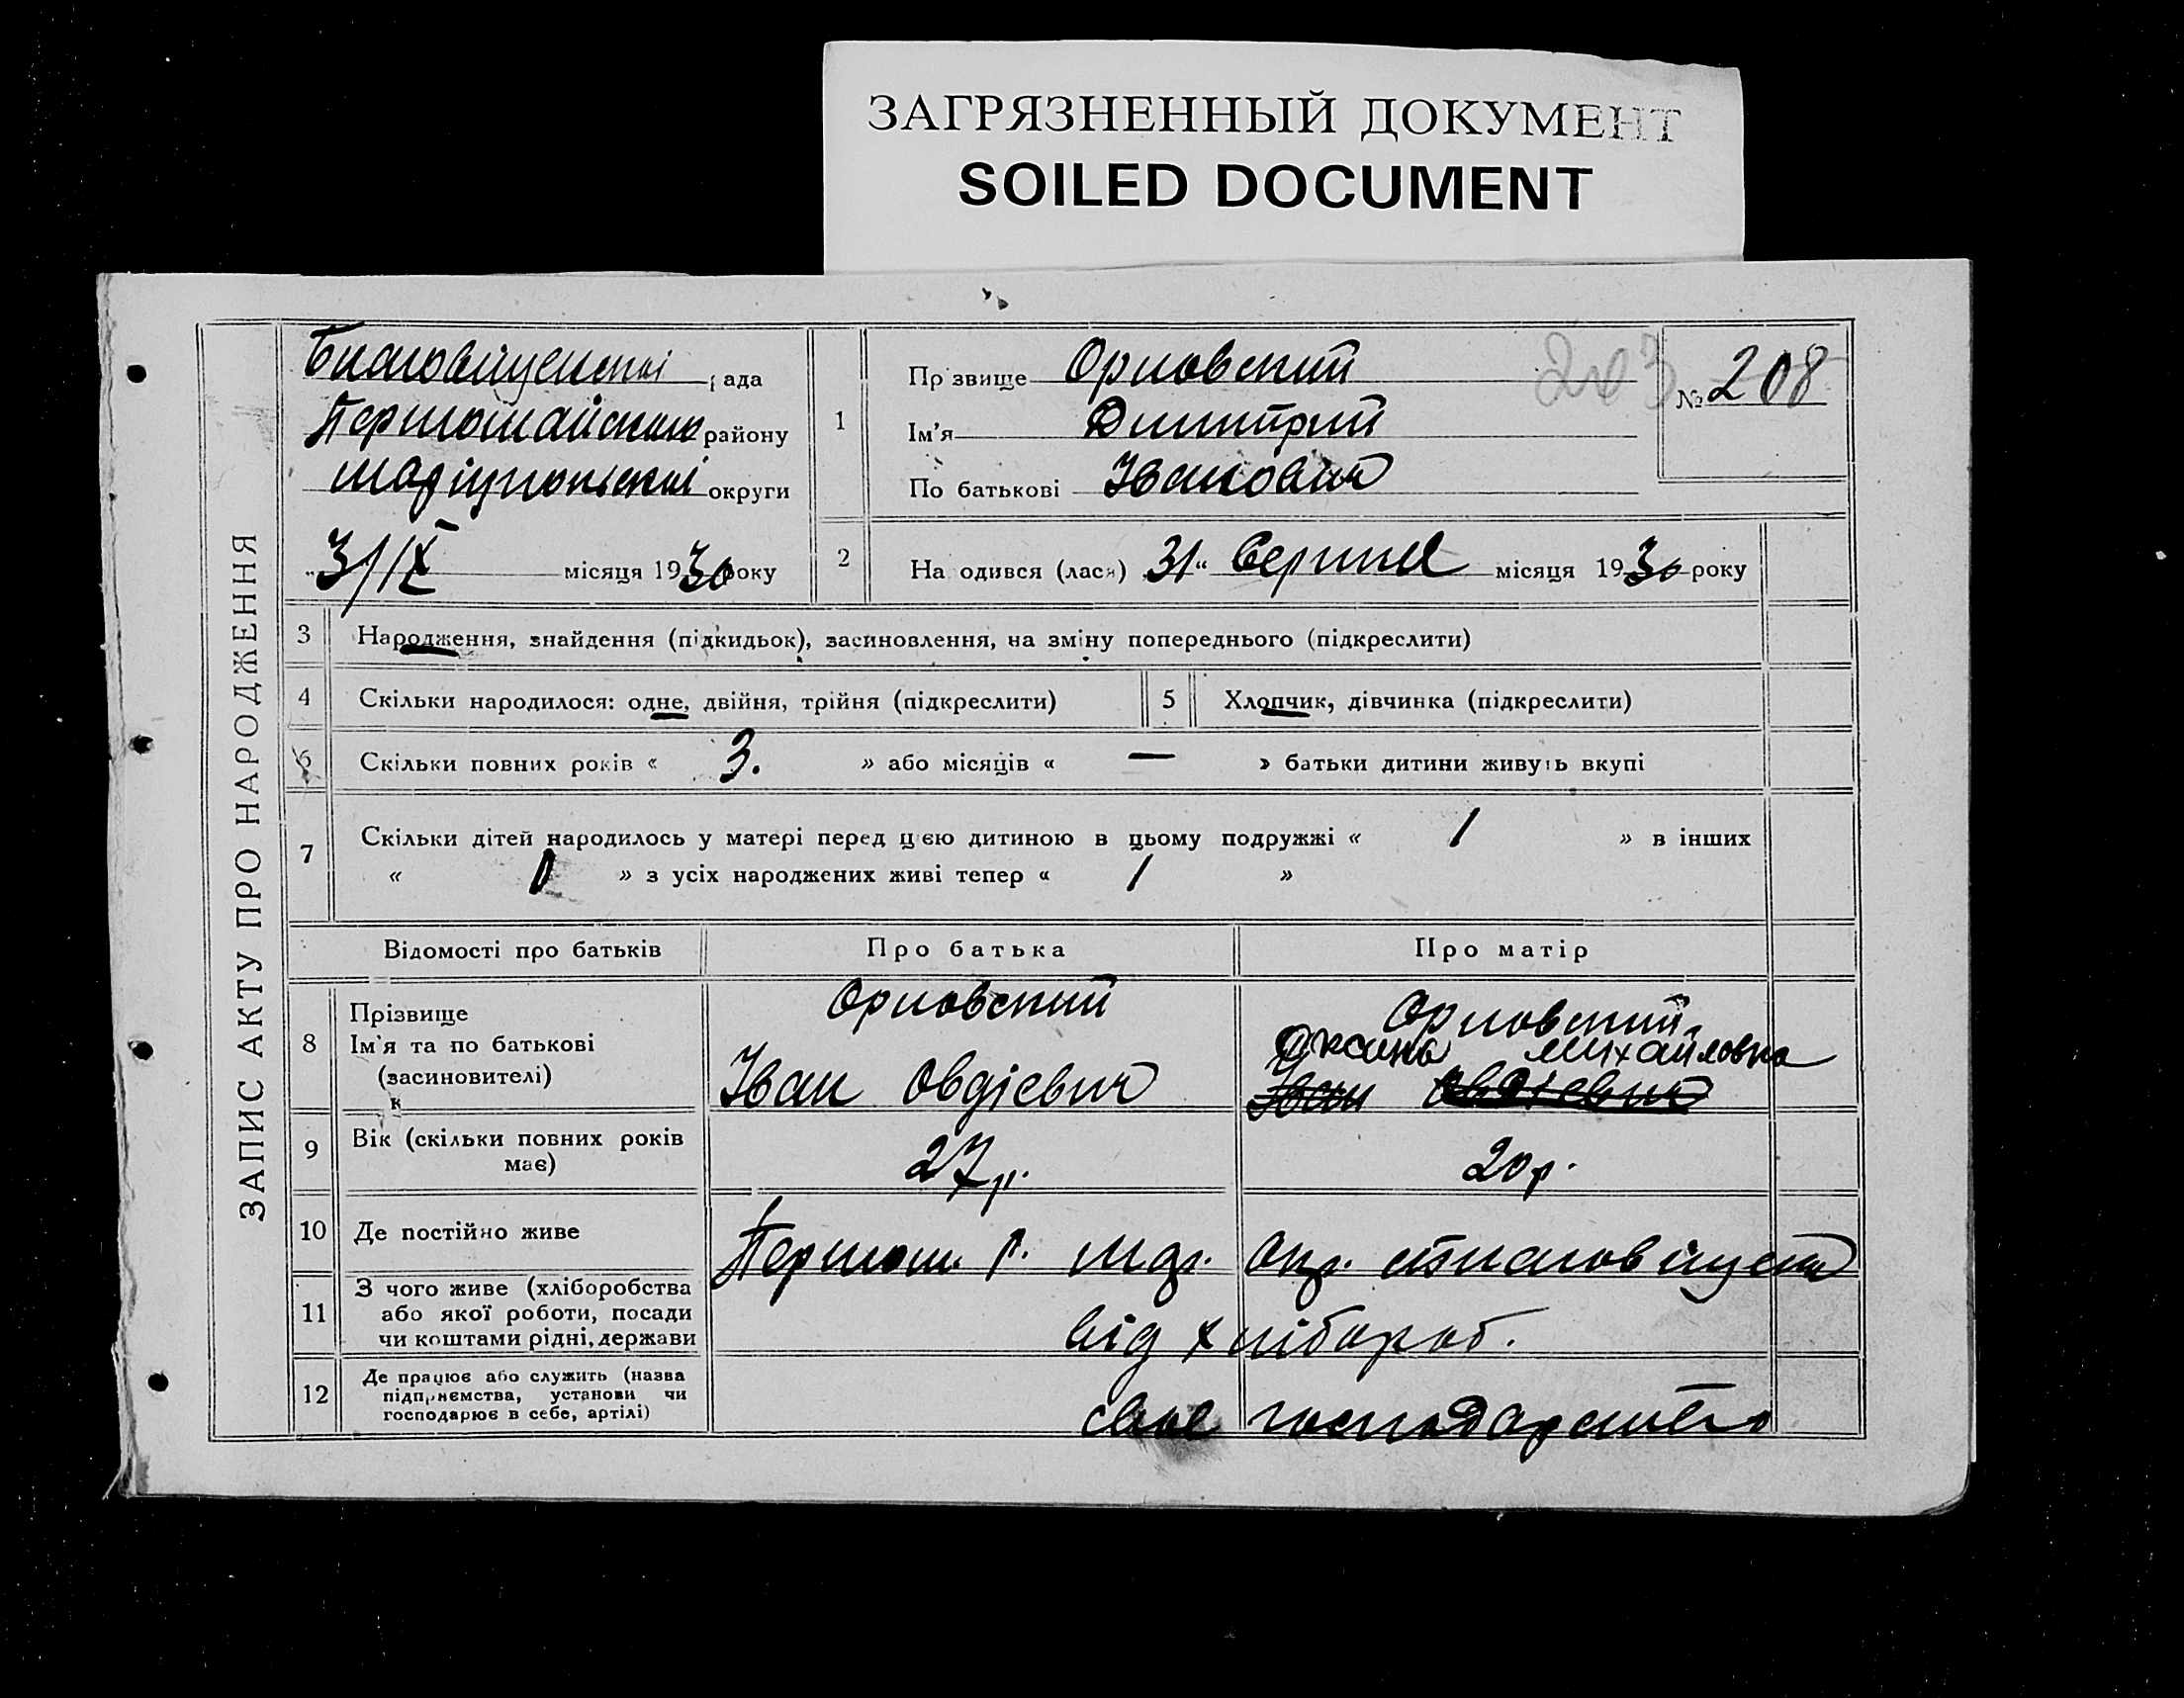 ЗАГРЯЗНЕННЫЙ ДОКУМЕНТ
SOILED DOCUMENT
ЗАПИС АКТУ ПРО НАРОДЖЕННЯ
Благовіщенскої рада
Першомайского району
Маріупольскої округи
3/IX місяця 1930 року
1
Прізвище Орловский
Ім'я Дмитрий
По батькові Іванович
203
№ 208
2
На одився (лася) 31 „ Серпня місяця 1930 року
3 Народження, знайдення (підкидьок), засиновлення, на зміну попереднього (підкреслити)
4 Скільки народилося: одне, двійня, трійня (підкреслити) 5 Хлопчик, дівчинка (підкреслити)
6 Скільки повних років « 3. » або місяців « — » батьки дитини живуть вкупі
7 Скільки дітей народилось у матері перед цією дитиною в цьому подружжі « 1 » в інших
« 0 » з усіх народжених живі тепер « 1 »
Відомості про батьків Про батька Про матір
8 Прізвище
Ім'я та по батькові
(засиновителі)
Орловский
Іван Овдієвич
Орловский
Оксана Михайловна
Іван Овдієвич
9 Вік (скільки повних років
має) 27 р. 20 р.
10 Де постійно живе Першом. р. Мар. окр. с Благовіщенка
11 З чого живе (хліборобства
або якої роботи, посади
чи коштами рідні, держави
від хлібороб.
12 Де працює або служить (назва
підприємства, установи чи
господарює в себе, артілі)
своє господарство